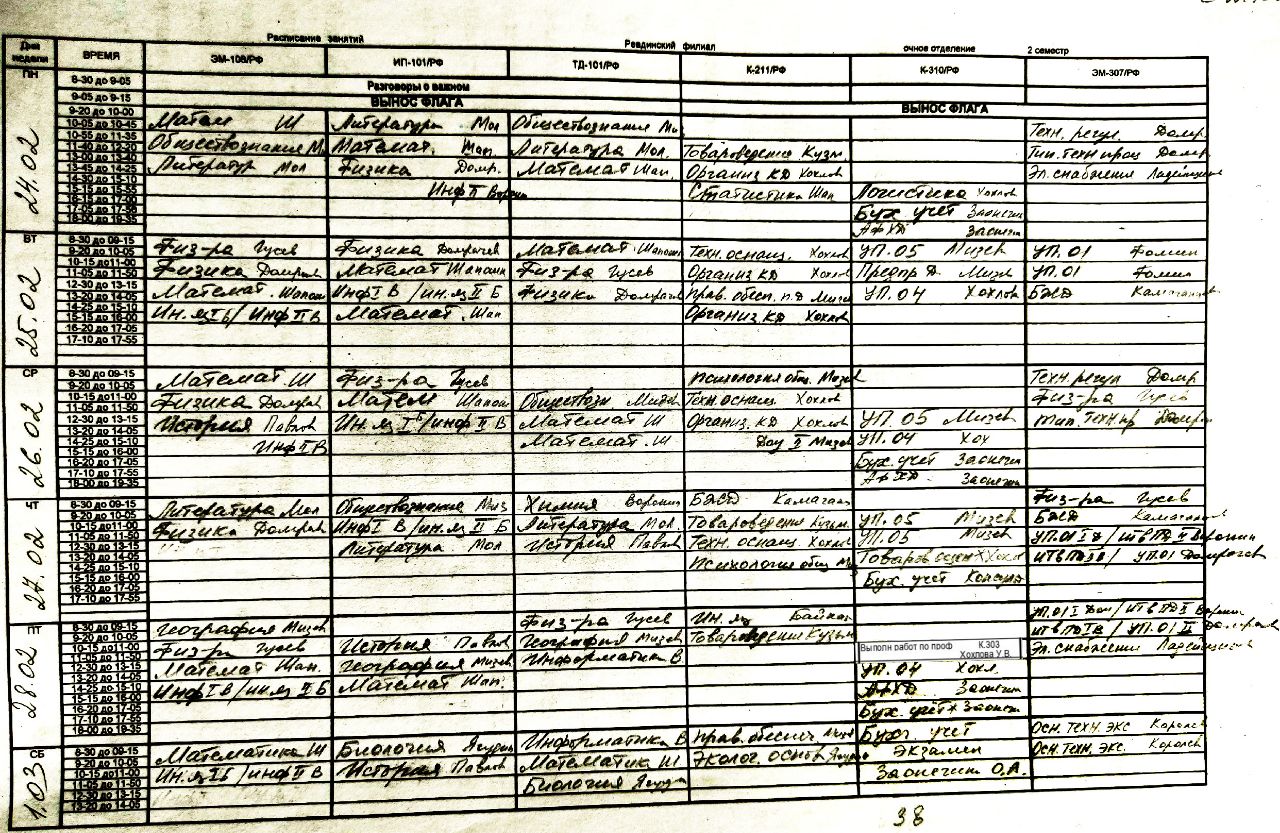 Расписание занятий Ревдинский филиал очное отделение 2 семестр
Дни недели ВРЕМЯ ЭМ-108/РФ ИП-101/РФ ТД-101/РФ К-211/РФ К-310/РФ ЭМ-307/РФ
ПН 8-30 до 9-05 Разговоры о важном
9-05 до 9-15 ВЫНОС ФЛАГА ВЫНОС ФЛАГА
24.02
9-20 до 10-00
10-05 до 10-45 Матем Ш Литература Мол Обществознание Ми Техн. регул. Домр.
10-55 до 11-35
11-40 до 12-20 Обществознание М Математ. Шап. Литература Мол. Товароведение Кузм. Тип. техн проц Домр.
13-00 до 13-40
13-45 до 14-25 Литератур Мол Физика Домр. Математ Шап. Организ КД Хохлов Эл. снабжение
14-30 до 15-10
15-15 до 15-55 Инф II Ворони Статистика Шап Логистика Хохлов
16-15 до 17-00
Бух. учет Заонегин
18-00 до 18-35 АФХД Заонегин
ВТ 25.02
8-30 до 09-15
9-20 до 10-05 Физ-ра Гусев Физика Домрачев Математ. Шапошн Техн. оснащ. Хохлов УП.05 Мизев УП.01 Фомин
10-15 до 11-00
11-05 до 11-50 Физика Домрач Математ Шапошн Физ-ра Гусев Организ КД Хохлов Предпр Д. Мизев УП.01 Фомин
12-30 до 13-15
13-20 до 14-05 Математ. Шапош Инф I В / ин. яз II Б Физика Домрачев Прав. обесп. п.д Мизев УП.04 Хохлов БЖД
14-25 до 15-10
15-15 до 16-00 Ин. яз I Б / Инф II В Математ. Шап Организ. КД Хохлов
16-20 до 17-05
17-10 до 17-55
СР 26.02
8-30 до 09-15
9-20 до 10-05 Математ. Ш Физ-ра Гусев Психология общ. Мизев Техн. регул Домр.
10-15 до 11-00
11-05 до 11-50 Физика Домрач Матем Шапош Обществозн Мизев Техн. оснащ Хохлов Физ-ра Гусев
12-30 до 13-15
13-20 до 14-05 История Павлов Ин. яз I Б / инф II В Математ Ш Организ. КД Хохлов УП.05 Мизев Тип. техн. пр Домрач
14-25 до 15-10
15-15 до 16-00 Инф II В Математ. Ш Доу II Мизев УП.04 Хох
16-20 до 17-05 Бух. учет Заонегин
17-10 до 17-55
18-00 до 19-35 АФХД Заонегин
ЧТ 27.02
8-30 до 09-15
9-20 до 10-05 Литература Мол Обществознание Миз Химия Воронин БЖД Физ-ра Гусев
10-15 до 11-00
11-05 до 11-50 Физика Домрач Инф I В / ин. яз II Б Литература Мол. Товароведение Кузьм. УП.05 Мизев БЖД
12-30 до 13-15
13-20 до 14-05 Литература Мол История Павлов Техн. оснащ. Хохлов УП.05 Мизев УП.01 I Д / ИТвПД II Воронин
14-25 до 15-10
15-15 до 16-00 Психология общ. Товаров Хохл УП.01 Домрачев
16-20 до 17-05
17-10 до 17-55 Бух. учет
ПТ 28.02
8-30 до 09-15
9-20 до 10-05 География Мизев Физ-ра Гусев Ин. яз УП.01 I Дом / ИТвПД II Ворони
10-15 до 11-00
11-05 до 11-50 Физ-ра Гусев История Павлов География Мизев Товароведение Кузьм Выполн работ по проф К.303 Хохлова У.В. ИТвПД I В / УП.01 II Домрачев
12-30 до 13-15
13-20 до 14-05 Математ Шап. География Мизев. Информатика В УП.04 Хохл. Эл. снабжение
14-25 до 15-10
15-15 до 16-00 Инф I В / ин. яз II Б Математ Шап. АФХД Заонегин
16-20 до 17-05
17-10 до 17-55 Бух. учёт Заонегин
18-00 до 18-35
СБ 1.03
8-30 до 09-15
9-20 до 10-05 Математика Ш Биология Информатика В Прав. обеспеч. Мизев Бухг. учет Осн. техн. экс Королев
10-15 до 11-00
11-05 до 11-50 Ин. яз I Б / инф II В История Павлов Математик Ш Эколог. основ Экзамен Осн. техн. экс. Королев
12-30 до 13-15
13-20 до 14-05 Биология Заонегин О.А.
38